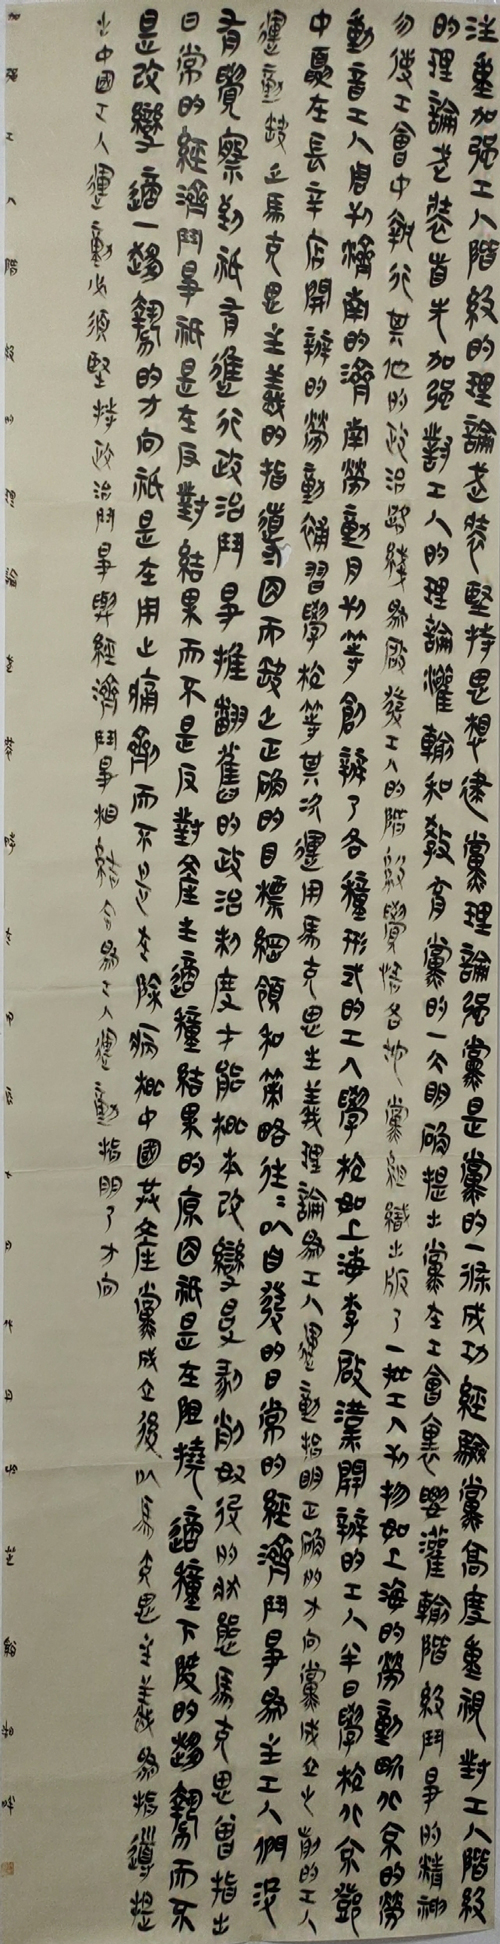 注重加强工人階級的理論武裝堅持思想建黨理論强黨是黨的一條成功經驗黨高度重視對工人階級
的理論武裝首先加强對工人的理論灌輸和教育黨的一大明确提出黨在工會裏要灌輸階級鬥爭的精神
勿使工會中執行其他的政治路綫爲啟發工人的階級覺悟各地黨組織出版了一批工人刊物如上海的勞動界北京的勞
動音工人周刊濟南的濟南勞動月刊等創辦了各種形式的工人學校如上海李啟漢開辦的工人半日學校北京鄧
中夏在長辛店開辦的勞動補習學校等其次運用馬克思主義理論爲工人運動指明正确的方向黨成立之前的工人
運動缺乏馬克思主義的指導因而缺乏正确的目標綱領和策略往往以自發的日常的經濟鬥爭爲主工人們没
有覺察到祇有進行政治鬥爭推翻舊的政治制度才能根本改變受剥削奴役的狀態馬克思曾指出
日常的經濟鬥爭祇是在反對結果而不是反對産生這種結果的原因祇是在阻撓這種下降的趨勢而不
是改變這一趨勢的方向祇是在用止痛劑而不是在除病根中國共産黨成立後以馬克思主義爲指導提
出中國工人運動必須堅持政治鬥爭與經濟鬥爭相結合爲工人運動指明了方向
加强工人階級的理論武裝